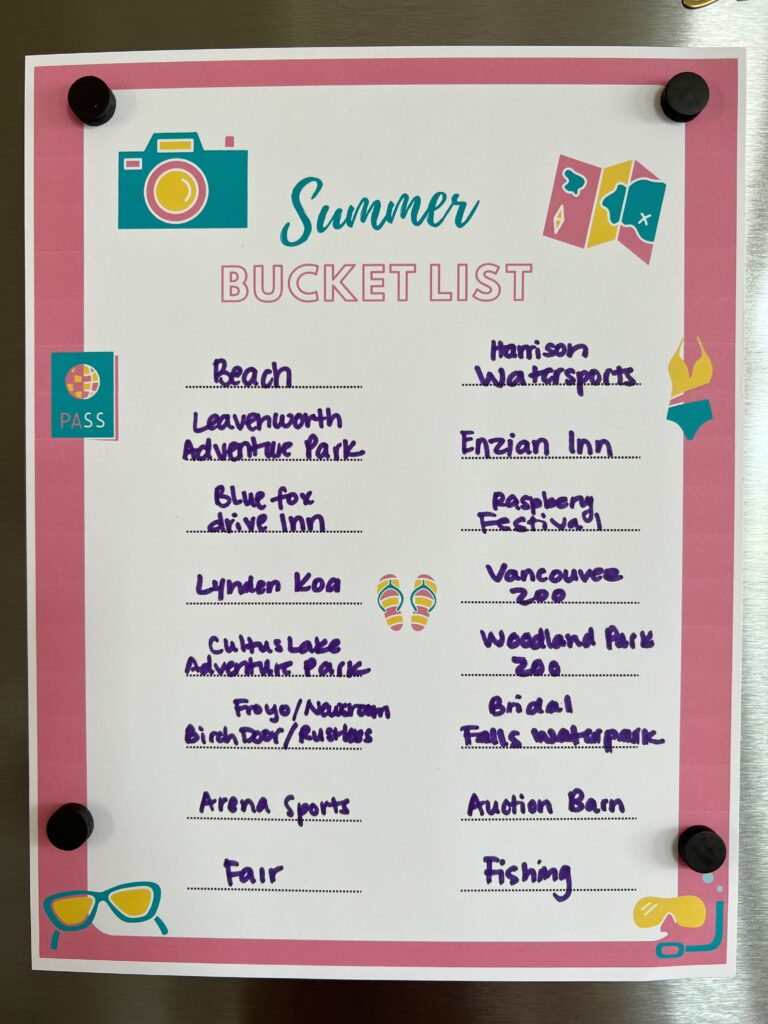 Summer
BUCKET LIST
PASS
Beach
Leavenworth
Adventure Park
Blue fox
drive Inn
Lynden Koa
Cultus Lake
Adventure Park
Froyo/
BirchDoor/
Arena Sports
Fair
Harrison
Watersports
Enzian Inn
Raspberry
Festival
Vancouver
Zoo
Woodland Park
Zoo
Bridal
Falls Waterpark
Auction Barn
Fishing